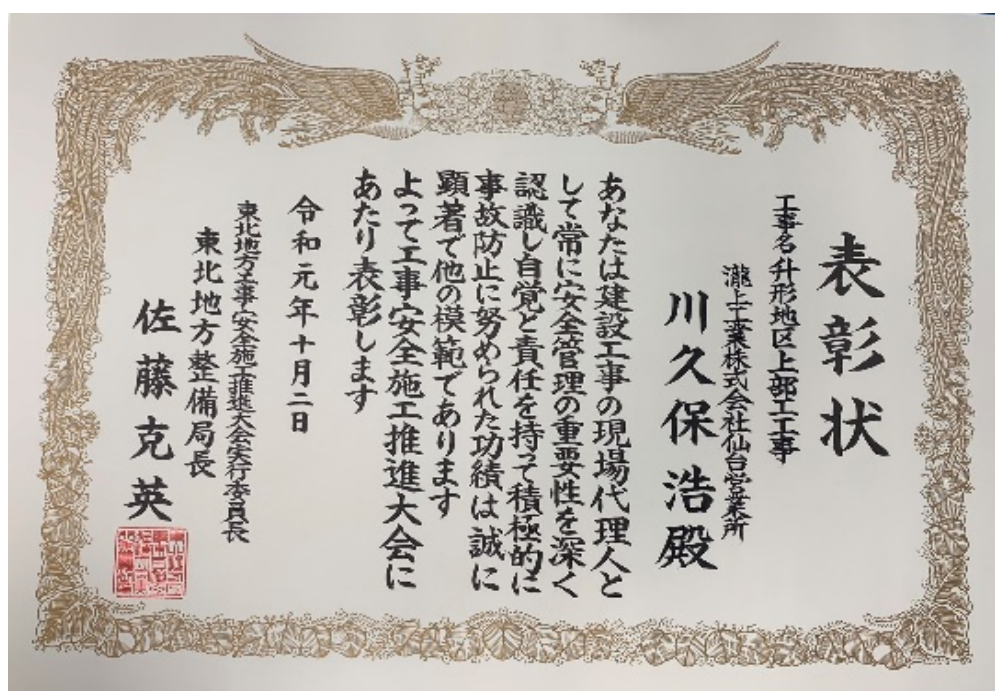 表彰状
工事名升形地区上部工工事
瀧上工業株式会社仙台営業所
川久保浩殿
あなたは建設工事の現場代理人と
して常に安全管理の重要性を深く
認識し自覚と責任を持って積極的に
事故防止に努められた功績は誠に
顕著で他の模範であります
よって工事安全施工推進大会に
あたり表彰します
令和元年十月二日
東北地方工事安全施工推進大会実行委員長
東北地方整備局長
佐藤克英